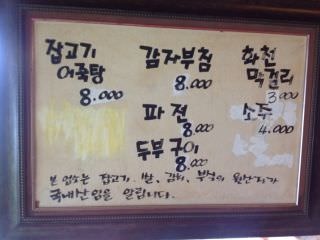 잡고기
어죽탕
8.000
감자부침
8.000
파전
8.000
두부구이
8.000
화천
막걸리
3.000
소주
4.000
본 업소는 잡고기. 쌀, 감자, 부침의 원산지가
국내산임을 알립니다.